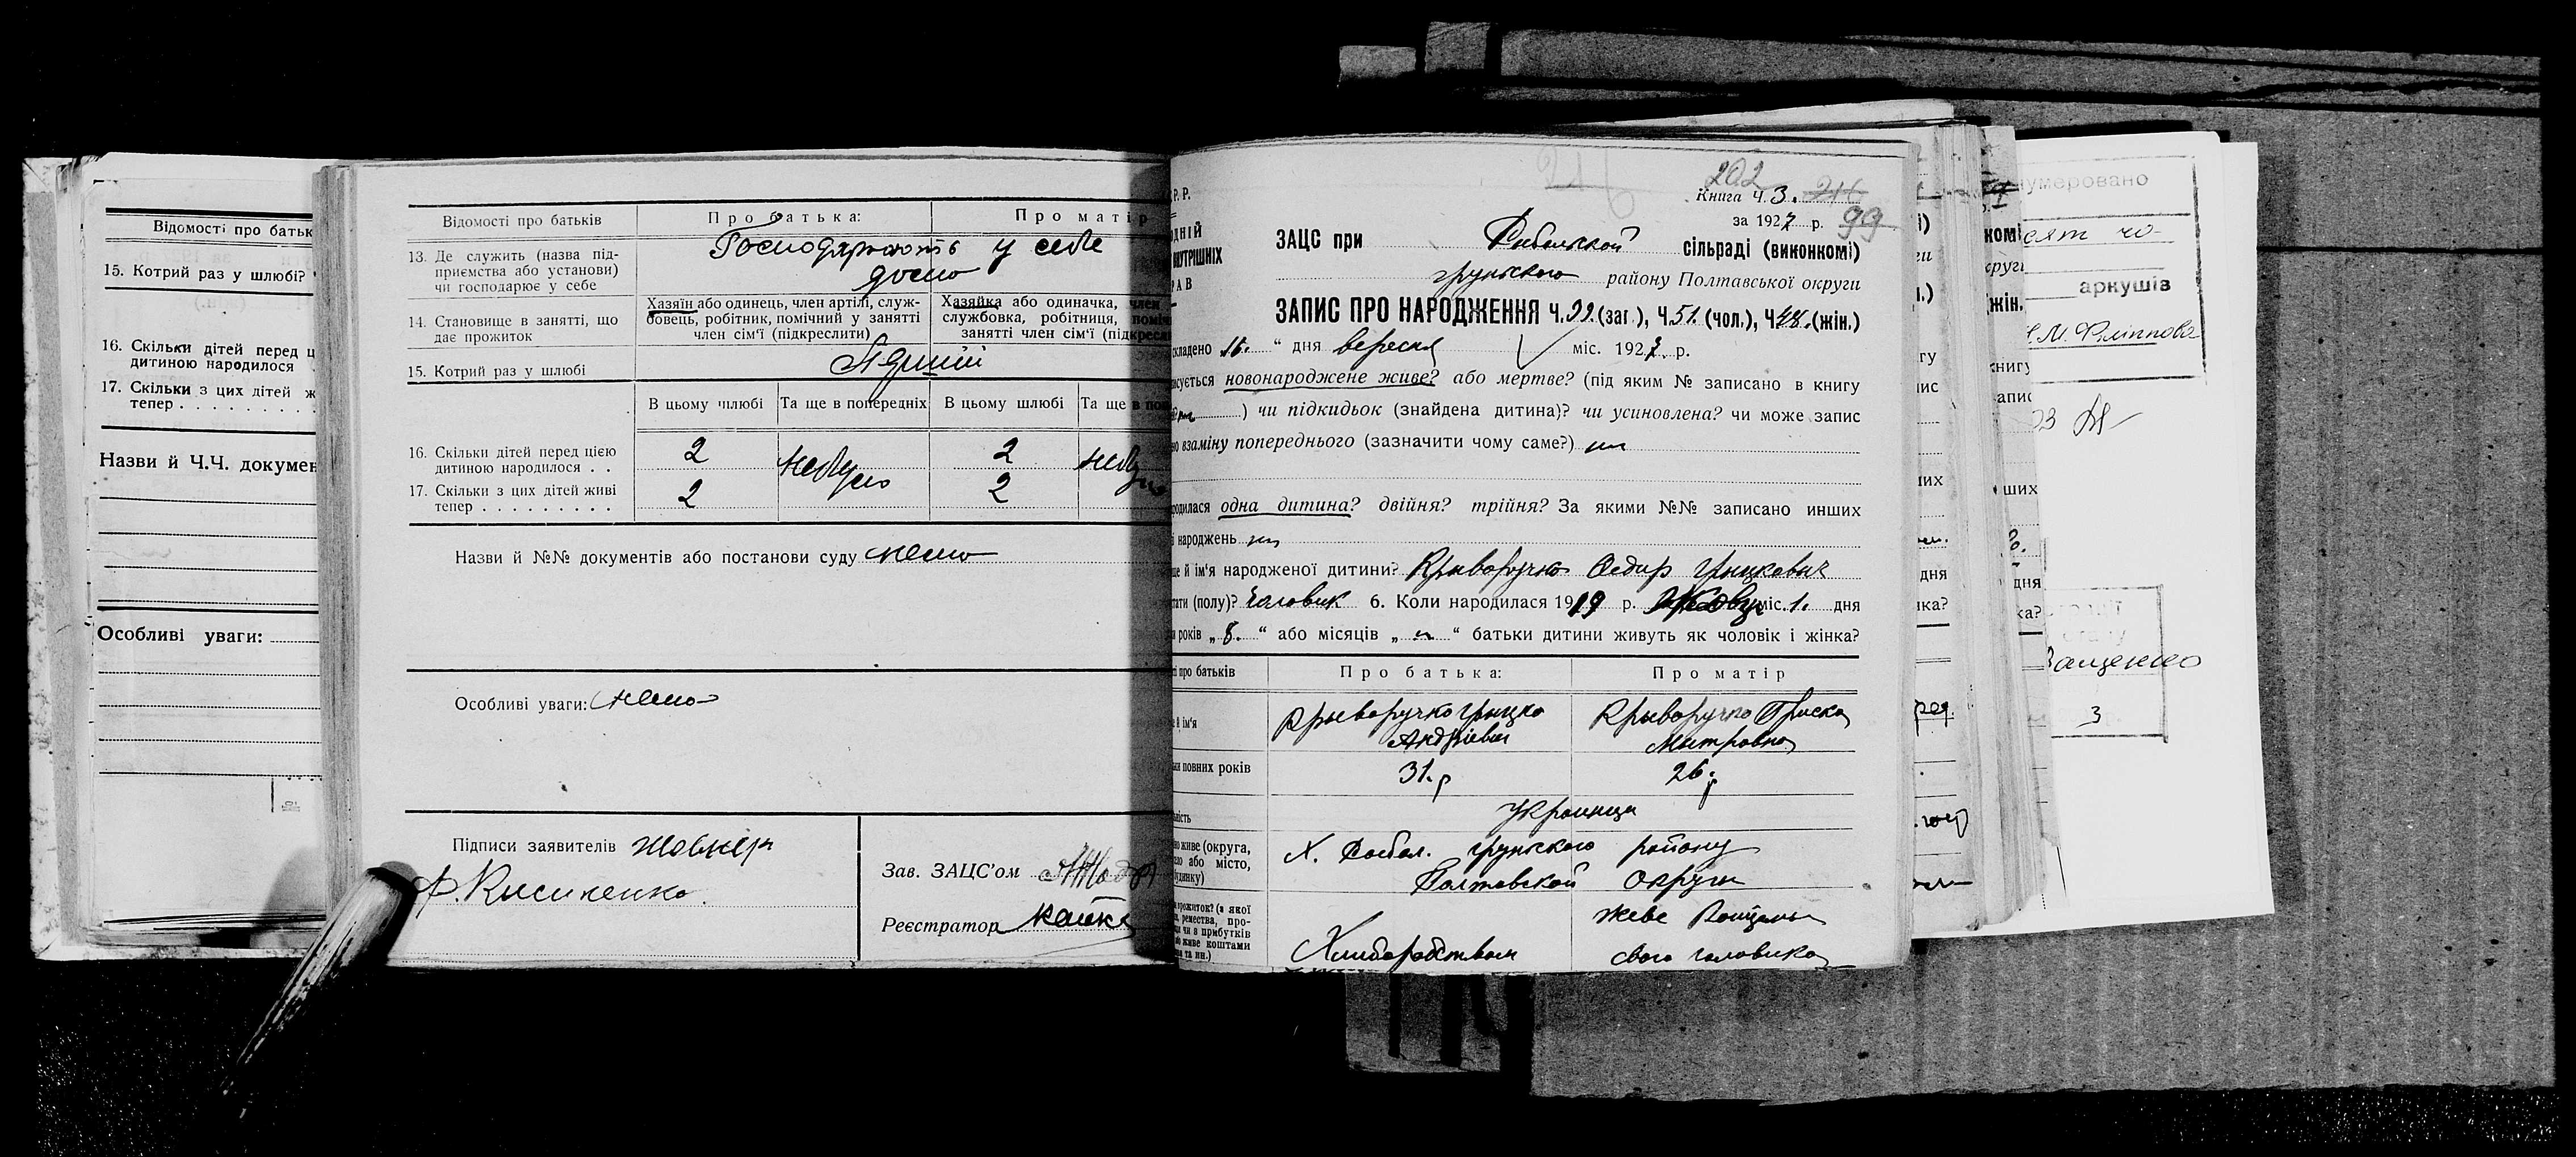 Відомості про батьк
15. Котрий раз у шлюбі?
16. Скільки дітей перед ц
дитиною народилося
17. Скільки з цих дітей ж
тепер . . . . . . . . .
Назви й Ч.Ч. докумен
Особливі уваги:
Відомості про батьків
Про батька:
Про матір
13. Де служить (назва під-
приємства або установи)
чи господарює у себе
Господарюють у себе
дома
14. Становище в занятті, що
дає прожиток
Хазяїн або одинець, член артілі, служ-
бовець, робітник, помічний у занятті
член сім'ї (підкреслити)
Хазяйка або одиначка, член
службовка, робітниця, поміч
занятті член сім'ї (підкресл
15. Котрий раз у шлюбі
В цьому шлюбі
Та ще в попередніх
В цьому шлюбі
Та ще в поп
16. Скільки дітей перед цією
дитиною народилося . .
2
небуло
2
небуло
17. Скільки з цих дітей живі
тепер . . . . . . . . .
2
2
Назви й №№ документів або постанови суду нема
Особливі уваги: нема
Підписи заявителів Жовнір
Ф. Кисиленко.
Зав. ЗАЦС'ом
Реєстратор
Р.Р.
ОДНІЙ
ВНУТРІШНІХ
РАВ
202
Книга Ч. 3.
за 1927 р. 99
ЗАЦС при
сільраді (виконкомі)
грунського району Полтавської округи
ЗАПИС ПРО НАРОДЖЕННЯ Ч. 99. (заг.), Ч. 51. (чол.), Ч. 48. (жін.)
складено 16. " дня вересня міс. 1927. р.
исується новонароджене живе? або мертве? (під яким № записано в книгу
) чи підкидьок (знайдена дитина)? чи усиновлена? чи може запис
но взаміну попереднього (зазначити чому саме?)
родилася одна дитина? двійня? трійня? За якими №№ записано инших
і народжень
ще й ім'я народженої дитини? Крыворучко Федир Грыцкович
тати (полу)? Чоловик 6. Коли народилася 1919 р. міс. 1. дня
и років „ 8. " або місяців „ " батьки дитини живуть як чоловік і жінка?
і про батьків
Про батька:
Про матір
е й ім'я
Крыворучко Грыцко
Андріевич
Крыворучко Приска
Митровна
ки повних років
31. р
26. р
ність
Украинци
но живе (округа,
ело або місто,
будинку)
Х. Рыбал. грунского району
Полтавской округи
прожиток? (з якої
, ремества, про-
и чи з прибутків
бо живе коштами
а та ин.)
Хлиборобством
живе
свого чоловика
умеровано
сят чо-
аркушів
.М. Филиппова
ащенко
3